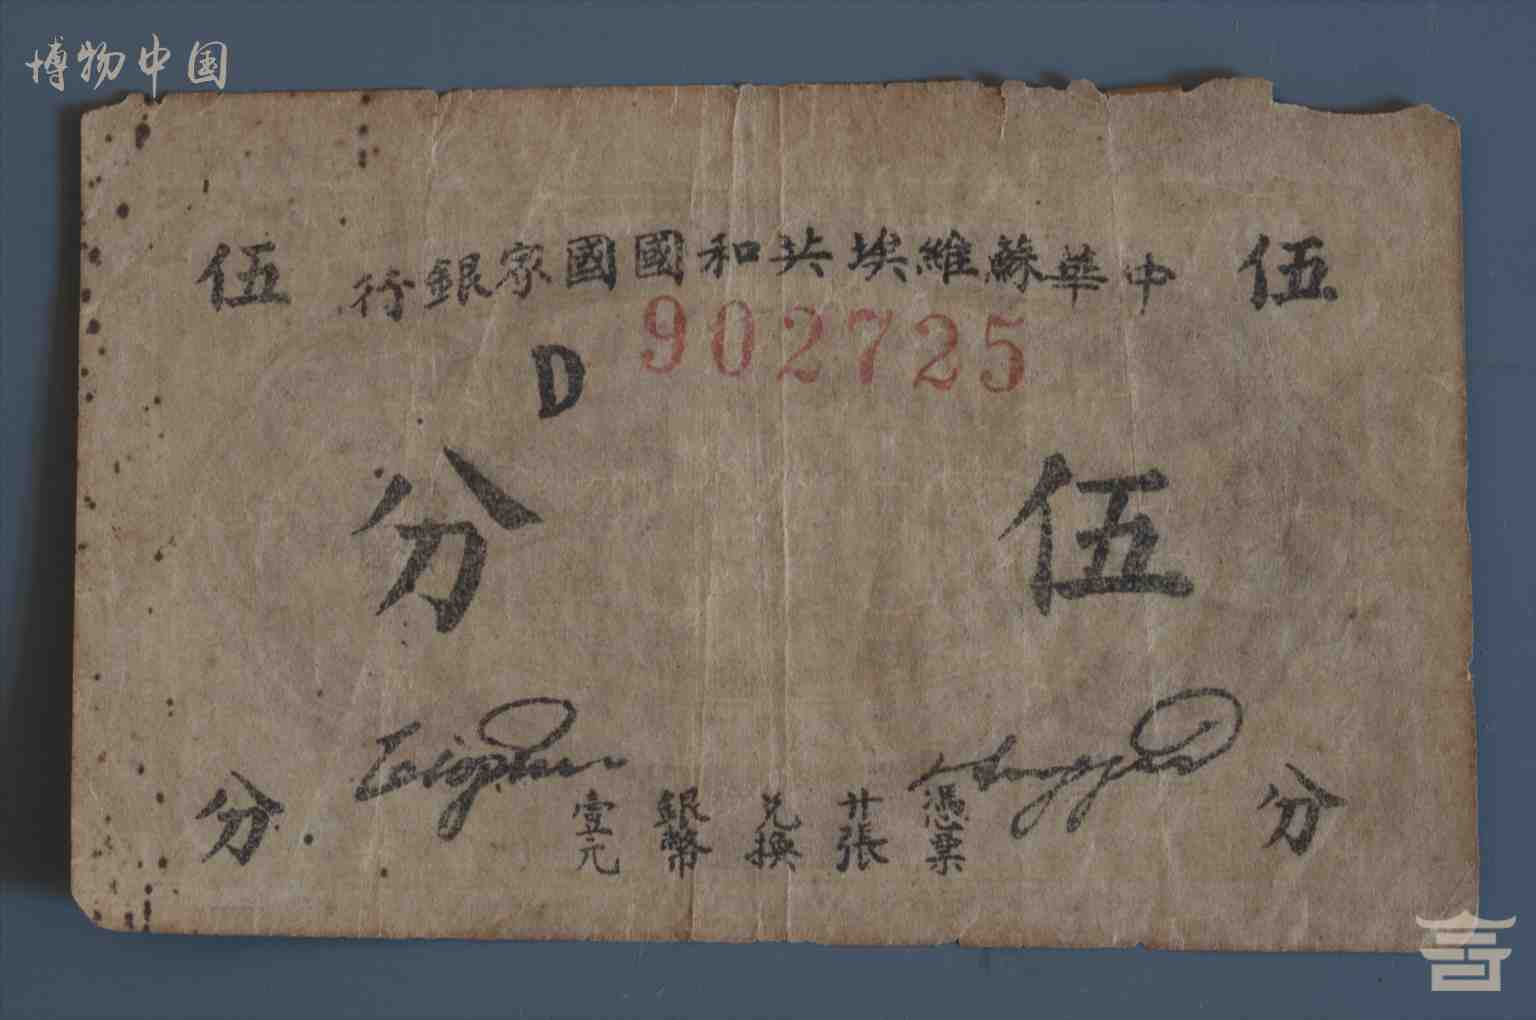 博物中国
伍
中華蘇維埃共和國國家銀行
伍
D 902725
伍分
分
憑票廿張兌換銀幣壹元
分